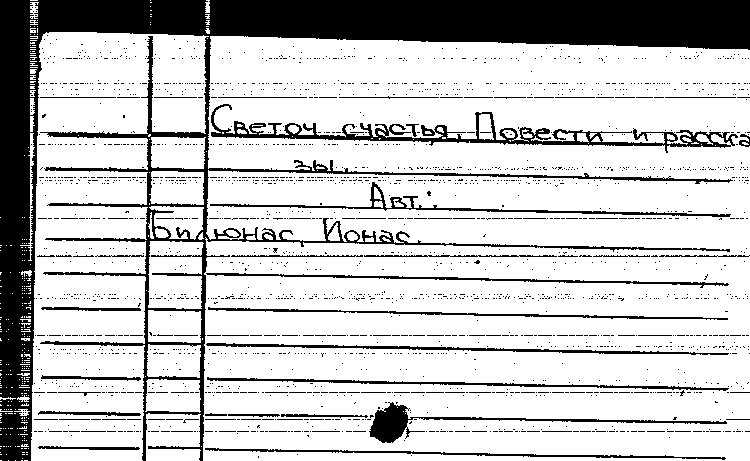 Светоч счастья. Повести и расска
зы.
Авт.:
Билюнас, Йонас.